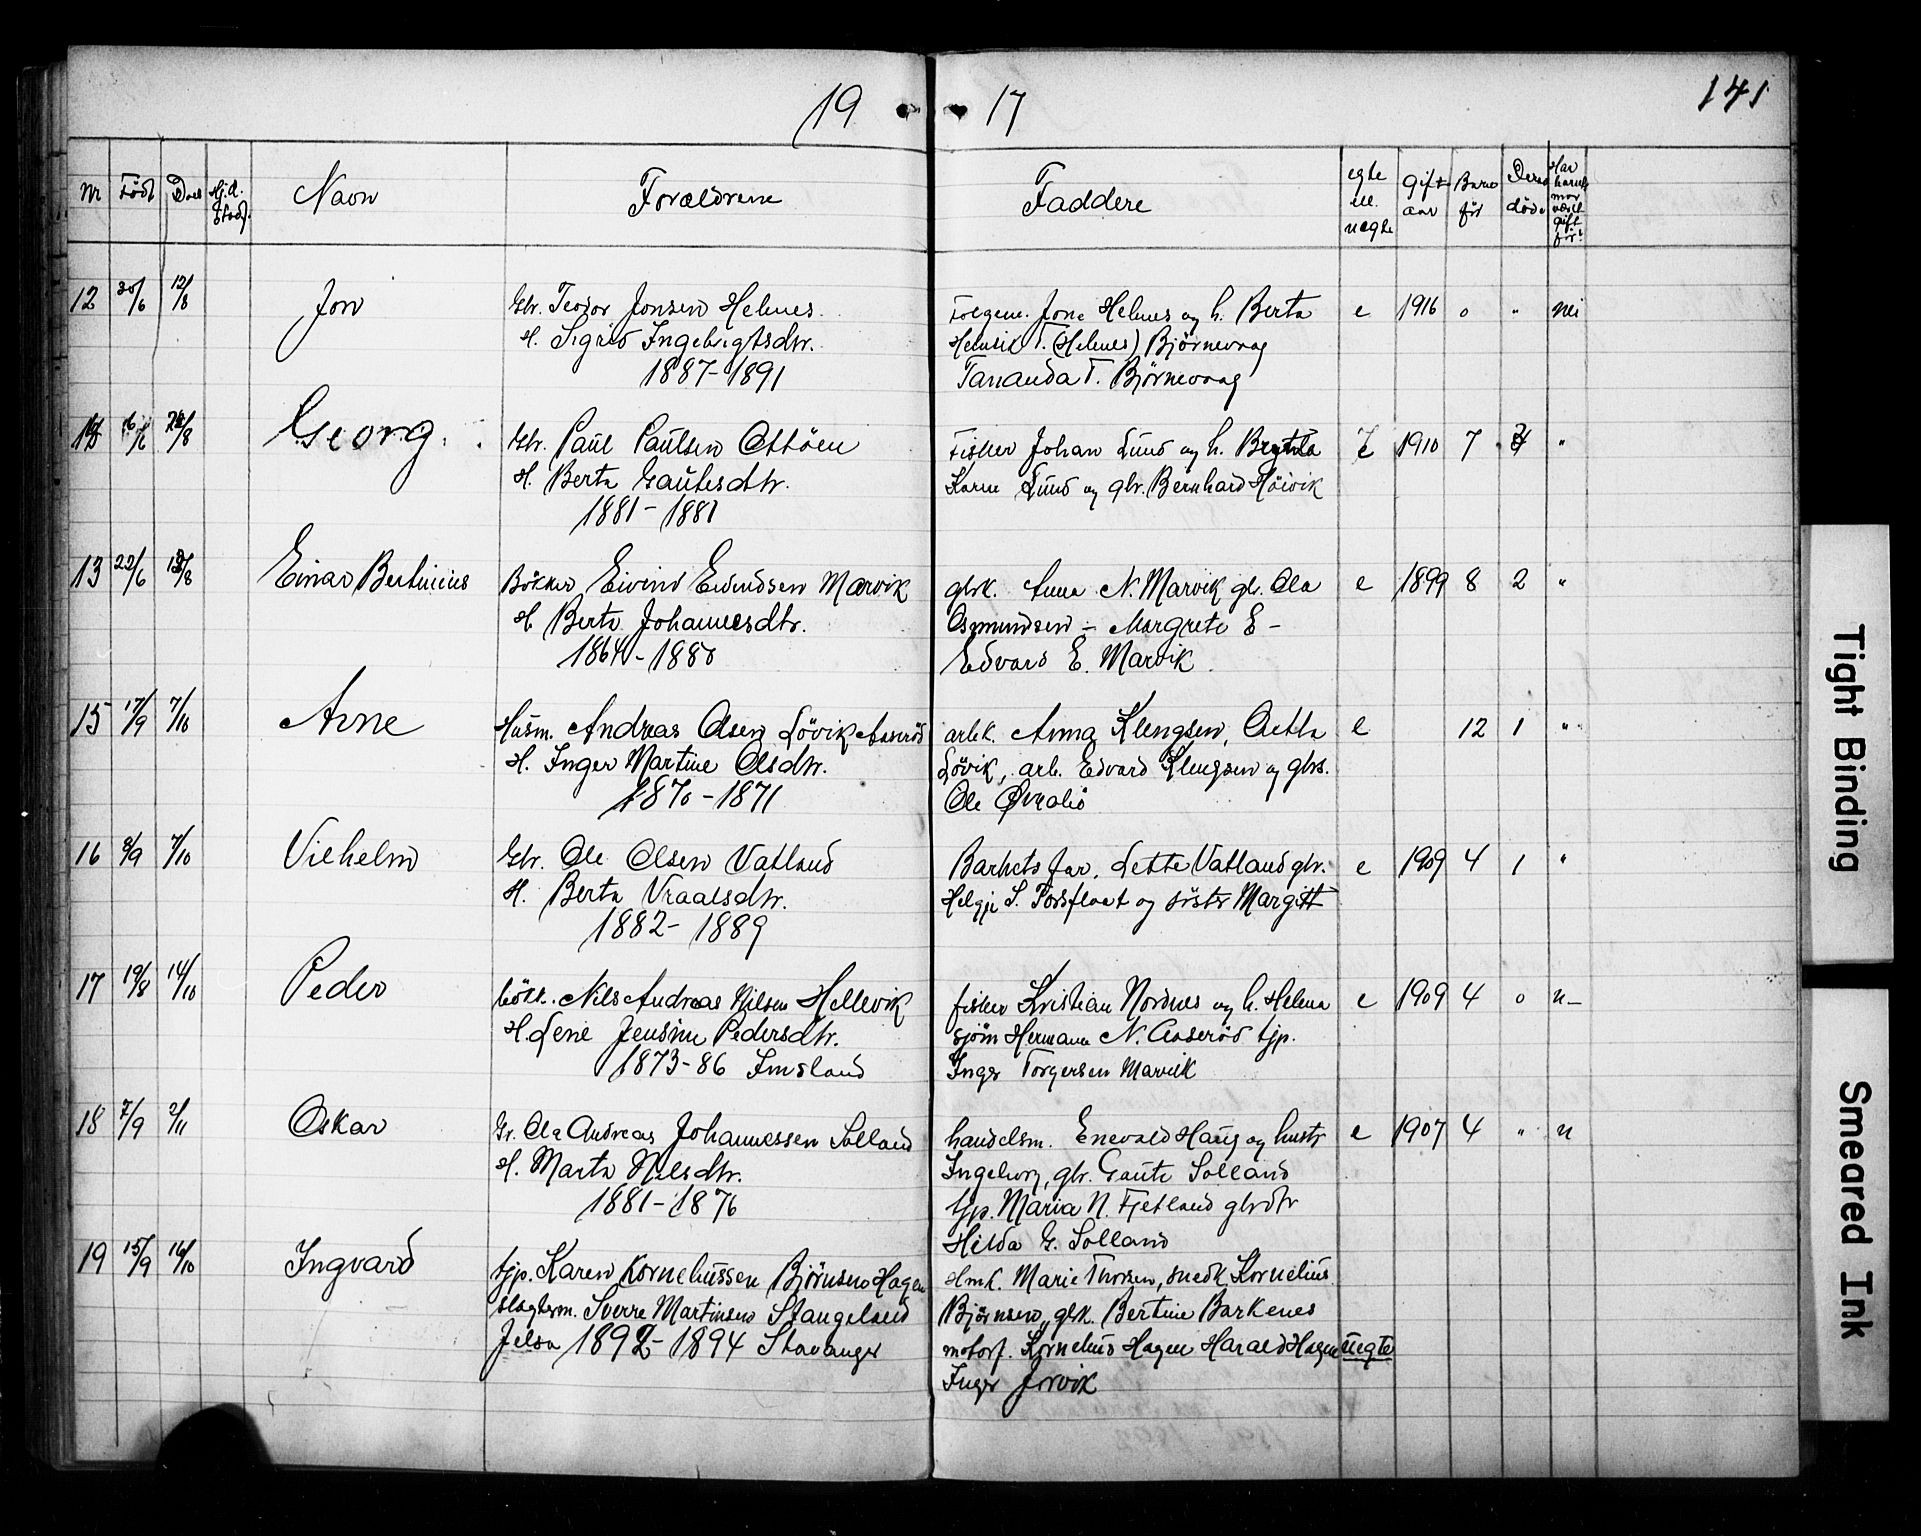 19 17
141
Nr Född Navn Forældrene Faddere egte el. uegte Gift aar Barn før Deraf døde Har barnets mor været gift før?
12 30/6 12/8 Jon Gbr. Teodor Jonsen Helnes Jone Helnes og h. Berta e 1916 0 " nei
H. Sigrid Ingebrigtsdtr. T. (Helnes) Bjørnevaag
1887-1891 T. Bjørnevaag
16/6 26/8 Georg. Gbr. Paul Paulsen Ottöen Fisker Johan Lund og h. 1910 7 "
H. Berta Gautesdtr. Lund og gbr. Bernhard Höivik
1881-1881
13 22/6 Einar Bertinius Bökker Eivind Eivindsen Marvik gbrk. Anna N. Marvik gbr. Ola e 1899 8 2 "
H. Berta Johannesdtr. Osmundsen – Margrete E –
Edvard E. Marvik.
15 17/9 7/10 Arne Husm. Andreas Olsen Lövik Aaseröd arbk. Anna Klengsen, e 12 1 "
H. Inger Martine Olsdtr. Lövik, arb. Edvard Klengsen og gbrs.
1870-1871 Ole
16 8/9 7/10 Vilhelm Gbr. Ole Olsen Vatland Barnets far, Lette Vatland gbr. e 1909 4 1 "
H. Berta Vraalsdtr. Helgje S. og söster Margitt
1882-1889
17 19/8 14/10 Peder bökk. Nils Andreas Nilsen Hellevik fisker Kristian Nordnes og h. Helena e 1909 4 0 n–
H. Lene Jensine Pedersdtr. sjöm Hermann N. Aaseröd tjp.
1873-86 Imsland Inger Torgersen Marvik
18 7/9 2/11 Oskar Gr. Ole Andreas Johannessen Solland handelsm. Enevald Haug og hustr e 1907 4 " n
H. Marta Nilsdtr. Ingeborg, gbr. Gaute Solland
1881-1876 tjp. Maria N. Fjetland gbrdtr
Hilda G. Solland
19 15/9 14/10 Ingvard tjp. Karen Korneliussen Björnsen Hagen Hmk. Marie Thorsen, snedk Kornelius
slagterm. Sverre Martinsen Stangeland Björnsen, gbk. Bertine Barkenes
Jelsa 1892-1894 Stavanger motorf. Kornelius Hagen Harald Hagen uegte
Inger Jörvik
Tight Binding
Smeared Ink